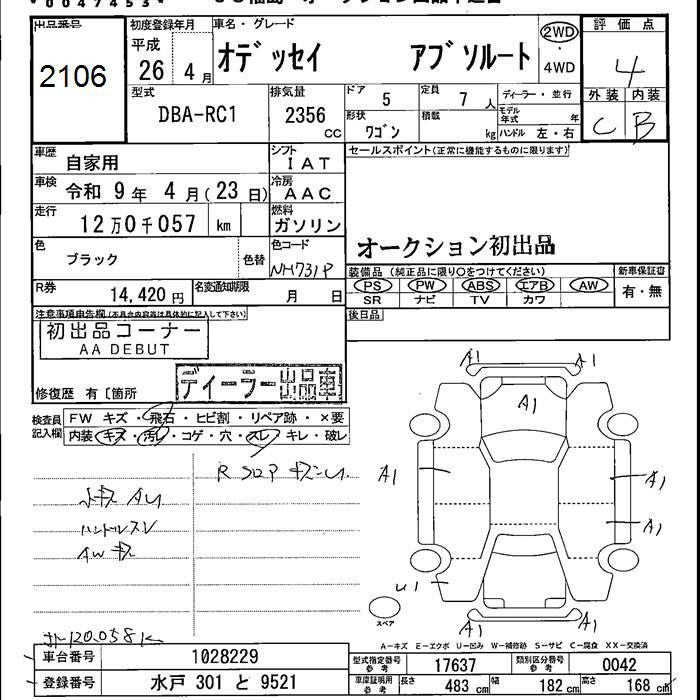 0047453
出品番号 初度登録年月 車名・グレード 2WD・4WD 評価点
2106 平成26年4月 オデッセイ アブソルート 4
外装 内装
C B
型式 排気量 ドア 定員 ディーラー・並行
DBA-RC1 2356cc 5 7人 モデル年式 年
形状 ワゴン 積載 kg ハンドル 左・右
車歴 自家用 シフト IAT セールスポイント(正常に機能するものに限ります)
車検 令和9年4月(23日) 冷房 AAC
走行 12万0千057 km 燃料 ガソリン
オークション初出品
色 ブラック 色替 色コード NH731P
装備品(純正品に限り○をつけてください) 新車保証書
PS PW ABS エアB AW 有・無
SR ナビ TV カワ
R券 14,420円 名変通知期限 月 日
後日品
注意事項申告欄(不具合内容等は具体的に記入して下さい)
初出品コーナー
AA DEBUT
ディーラー出品車
修復歴 有〔箇所
検査員記入欄 FW キズ・飛石・ヒビ割・リペア跡・×要
内装・キズ・汚レ・コゲ・穴・スレ・キレ・破レ
A1 A1
A1
A1 A1
A1
U1
A1 A1
スペア
ハンドルスレ
AWキズ
A-キズ E-エクボ U-凹み W-補修跡 S-サビ C-腐食 XX-交換済
車台番号 1028229 型式指定番号参考 17637 類別区分番号参考 0042
登録番号 水戸 301 と 9521 車庫証明用参考 長さ 483cm 幅 182cm 高さ 168cm